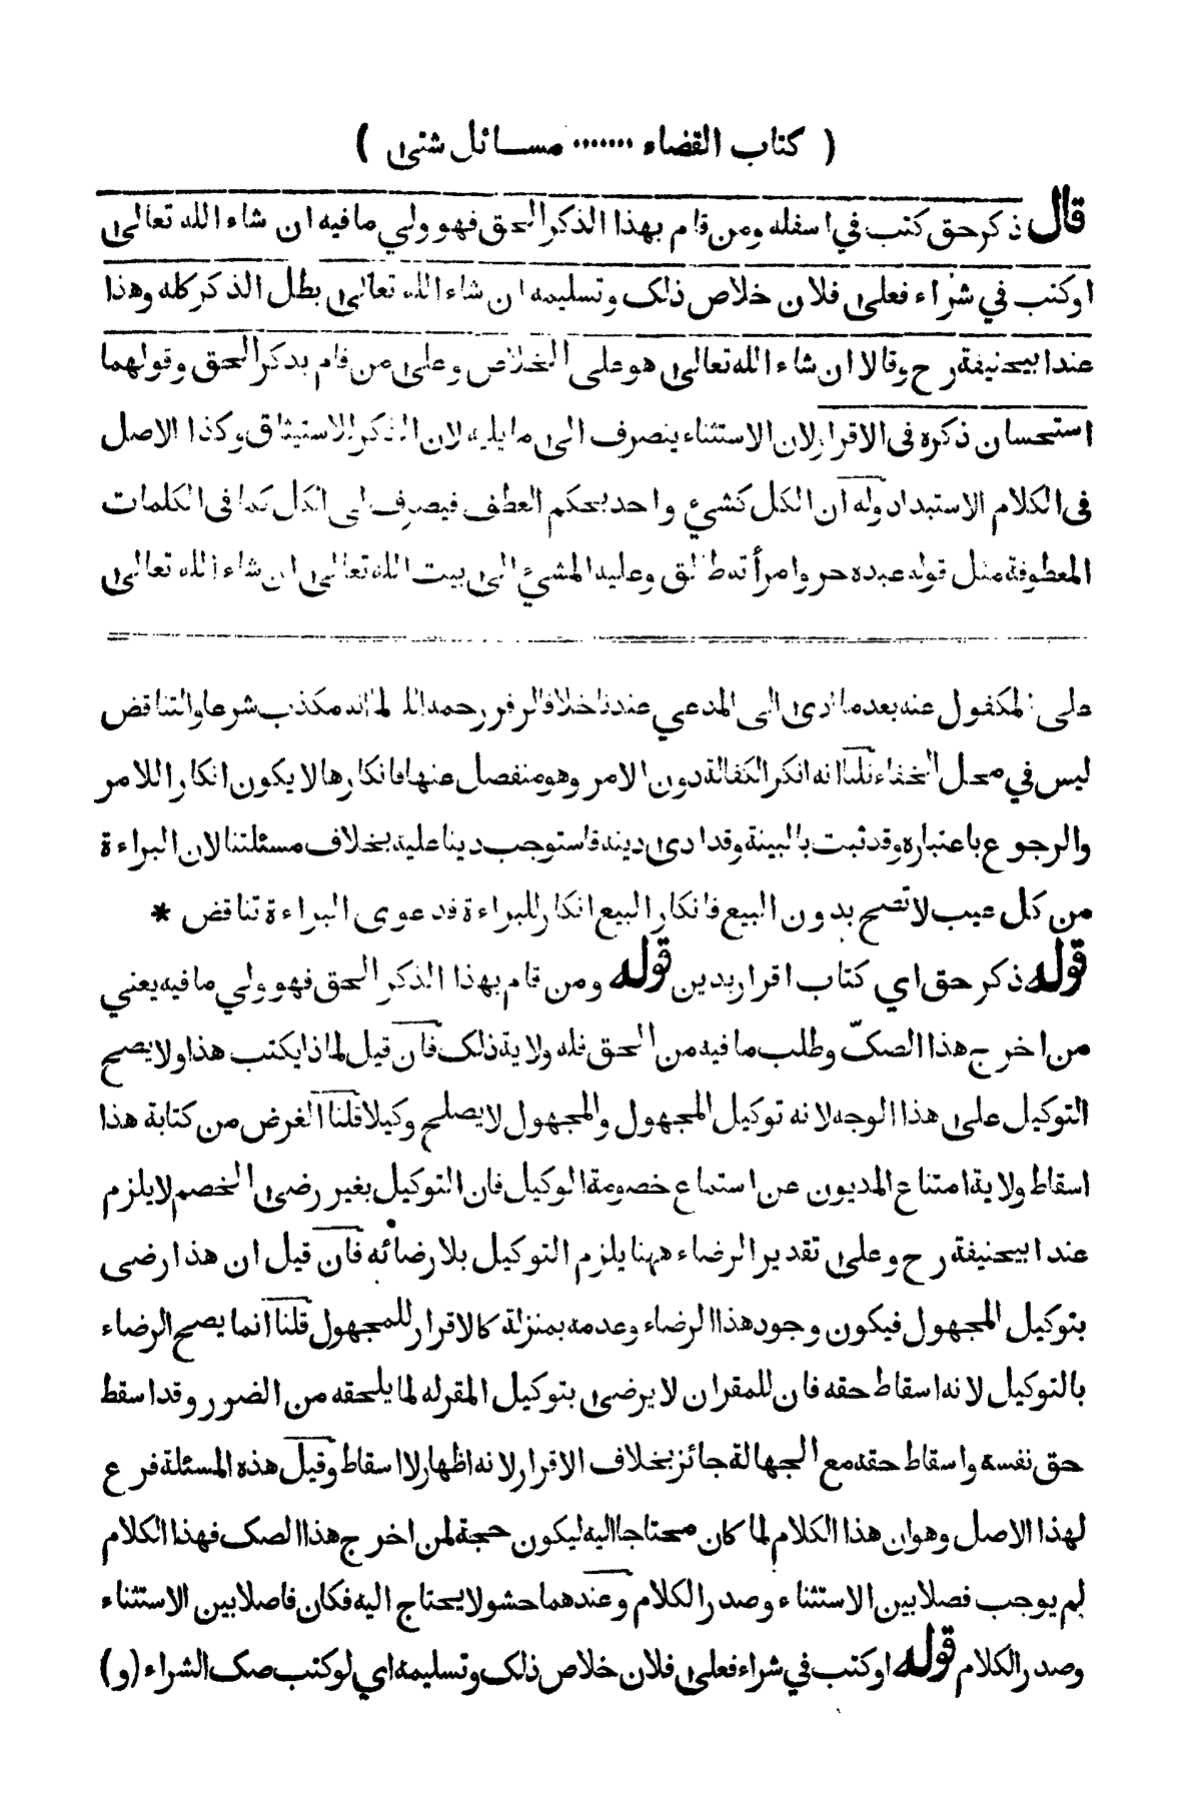 ( كتاب القضاء ······· مسائل شتى )
قال ذكر حق كتب في اسفله ومن قام بهذا الذكر الحق فهو ولي ما فيه ان شاء الله تعالى
او كتب في شراء فعلى فلان خلاص ذلك وتسليمه ان شاء الله تعالى بطل الذكر كله وهذا
عند ابيحنيفة رح وقالا ان شاء الله تعالى هو على الخلاص وعلى من قام بذكر الحق وقولهما
استحسان ذكره فى الاقرار لان الاستثناء ينصرف الى ما يليه لان الذكر للاستيثاق وكذا الاصل
فى الكلام الاستبداد وله ان الكل كشيء واحد بحكم العطف فيصرف الى الكل كما فى الكلمات
المعطوفة مثل قوله عبده حر وامرأته طالق وعليه المشي الى بيت الله تعالى ان شاء الله تعالى
على المكفول عنه بعد ما ادى الى المدعي عندنا خلافا لزفر رحمه الله لما انه مكذب شرعا والتناقض
ليس في محل الخفاء قلنا انه انكر الكفالة دون الامر وهو منفصل عنها فانكارها لا يكون انكارا للامر
والرجوع باعتباره وقد ثبت بالبينة وقد ادى دينه فاستوجب دينا عليه بخلاف مسئلتنا لان البراءة
من كل عيب لا تصح بدون البيع فانكار البيع انكار للبراءة فدعوى البراءة تناقض *
قوله ذكر حق اي كتاب اقرار بدين قوله ومن قام بهذا الذكر الحق فهو ولي ما فيه يعني
من اخرج هذا الصكّ وطلب ما فيه من الحق فله ولاية ذلك فان قيل لماذا يكتب هذا ولا يصح
التوكيل على هذا الوجه لانه توكيل المجهول والمجهول لا يصلح وكيلا قلنا الغرض من كتابة هذا
اسقاط ولاية امتناع المديون عن استماع خصومة الوكيل فان التوكيل بغير رضى الخصم لا يلزم
عند ابيحنيفة رح وعلى تقدير الرضاء ههنا يلزم التوكيل بلا رضائه فان قيل ان هذا رضى
بتوكيل المجهول فيكون وجود هذا الرضاء وعدمه بمنزلة كالاقرار للمجهول قلنا انما يصح الرضاء
بالتوكيل لانه اسقاط حقه فان للمقران لا يرضى بتوكيل المقر له لما يلحقه من الضرر وقد اسقط
حق نفسه واسقاط حقه مع الجهالة جائز بخلاف الاقرار لانه اظهار لا اسقاط وقيل هذه المسئلة فرع
لهذا الاصل وهو ان هذا الكلام لما كان محتاجا اليه ليكون حجة لمن اخرج هذا الصك فهذا الكلام
لم يوجب فصلا بين الاستثناء وصدر الكلام وعندهما حشو لا يحتاج اليه فكان فاصلا بين الاستثناء
وصدر الكلام قوله او كتب في شراء فعلى فلان خلاص ذلك وتسليمه اي لو كتب صك الشراء (و)